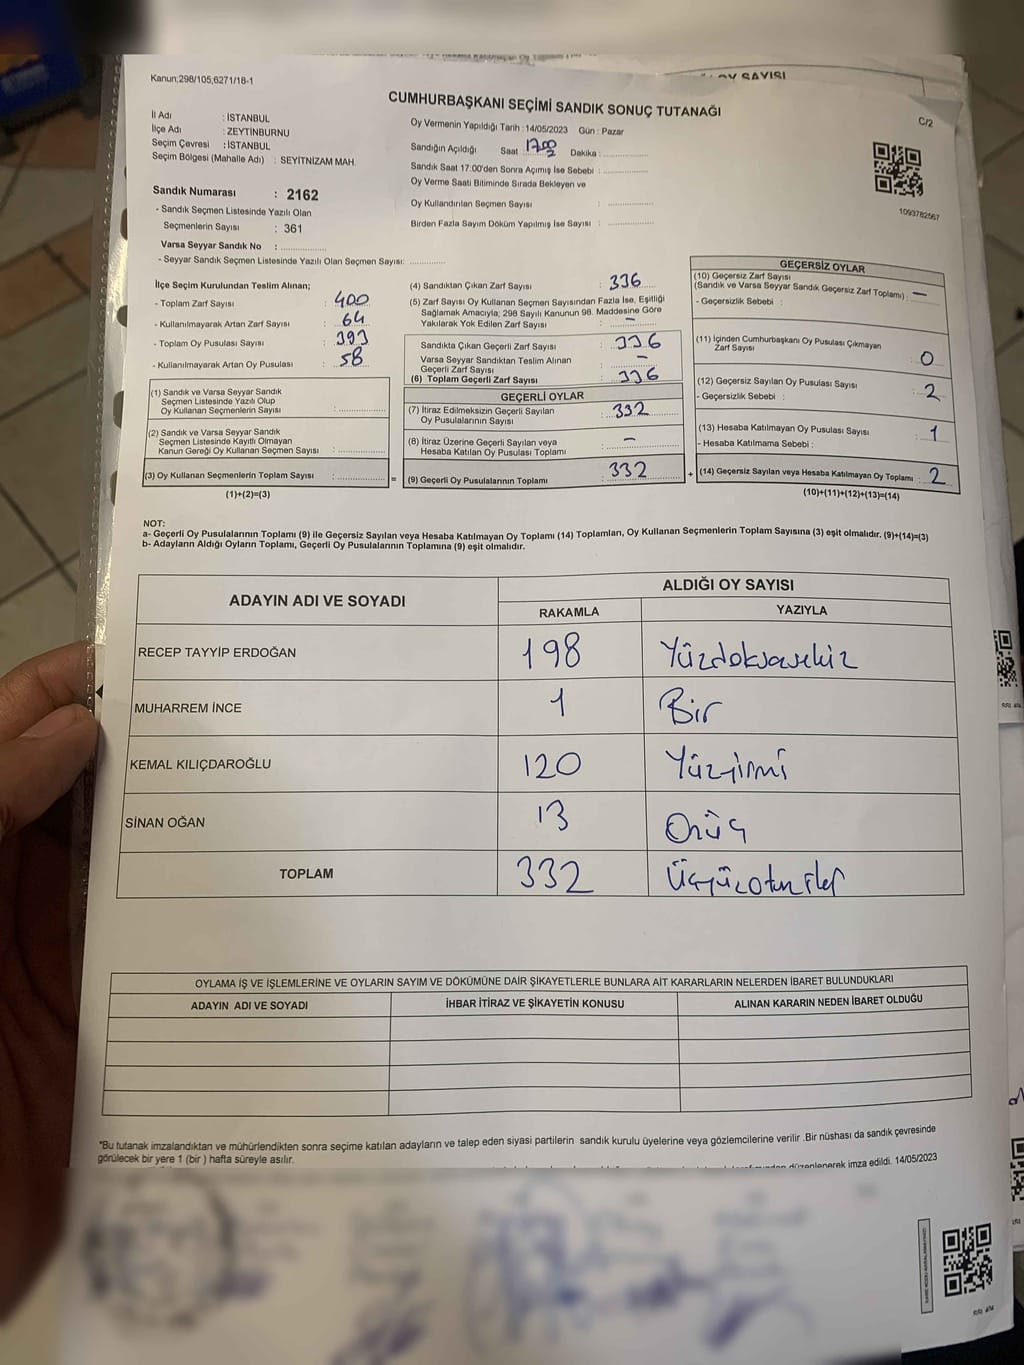 OY SAYISI
Kanun;298/105,6271/18-1
CUMHURBAŞKANI SEÇİMİ SANDIK SONUÇ TUTANAĞI
C/2
İl Adı : İSTANBUL
İlçe Adı : ZEYTİNBURNU
Seçim Çevresi : İSTANBUL
Seçim Bölgesi (Mahalle Adı) : SEYİTNİZAM MAH.
Sandık Numarası : 2162
- Sandık Seçmen Listesinde Yazılı Olan
Seçmenlerin Sayısı : 361
Varsa Seyyar Sandık No :
- Seyyar Sandık Seçmen Listesinde Yazılı Olan Seçmen Sayısı:
Oy Vermenin Yapıldığı Tarih : 14/05/2023 Gün : Pazar
Sandığın Açıldığı Saat 17:00 Dakika :
Sandık Saat 17:00'den Sonra Açımış İse Sebebi :
Oy Verme Saati Bitiminde Sırada Bekleyen ve
Oy Kullandırılan Seçmen Sayısı :
Birden Fazla Sayım Döküm Yapılmış İse Sayısı :
1093782567
İlçe Seçim Kurulundan Teslim Alınan;
- Toplam Zarf Sayısı : 400
- Kullanılmayarak Artan Zarf Sayısı : 64
- Toplam Oy Pusulası Sayısı : 393
- Kullanılmayarak Artan Oy Pusulası : 58
(1) Sandık ve Varsa Seyyar Sandık
Seçmen Listesinde Yazılı Olup
Oy Kullanan Seçmenlerin Sayısı :
(2) Sandık ve Varsa Seyyar Sandık
Seçmen Listesinde Kayıtlı Olmayan
Kanun Gereği Oy Kullanan Seçmen Sayısı :
(3) Oy Kullanan Seçmenlerin Toplam Sayısı :
(1)+(2)=(3)
(4) Sandıktan Çıkan Zarf Sayısı : 336
(5) Zarf Sayısı Oy Kullanan Seçmen Sayısından Fazla İse, Eşitliği
Sağlamak Amacıyla; 298 Sayılı Kanunun 98. Maddesine Göre
Yakılarak Yok Edilen Zarf Sayısı : –
Sandıkta Çıkan Geçerli Zarf Sayısı : 336
Varsa Seyyar Sandıktan Teslim Alınan
Geçerli Zarf Sayısı : –
(6) Toplam Geçerli Zarf Sayısı : 336
GEÇERLİ OYLAR
(7) İtiraz Edilmeksizin Geçerli Sayılan
Oy Pusulalarının Sayısı : 332
(8) İtiraz Üzerine Geçerli Sayılan veya
Hesaba Katılan Oy Pusulası Toplamı –
(9) Geçerli Oy Pusulalarının Toplamı : 332
GEÇERSİZ OYLAR
(10) Geçersiz Zarf Sayısı
(Sandık ve Varsa Seyyar Sandık Geçersiz Zarf Toplamı) : –
- Geçersizlik Sebebi :
(11) İçinden Cumhurbaşkanı Oy Pusulası Çıkmayan
Zarf Sayısı : 0
(12) Geçersiz Sayılan Oy Pusulası Sayısı : 2
- Geçersizlik Sebebi :
(13) Hesaba Katılmayan Oy Pusulası Sayısı : 1
- Hesaba Katılmama Sebebi :
(14) Geçersiz Sayılan veya Hesaba Katılmayan Oy Toplamı : 2
(10)+(11)+(12)+(13)=(14)
NOT:
a- Geçerli Oy Pusulalarının Toplamı (9) ile Geçersiz Sayılan veya Hesaba Katılmayan Oy Toplamı (14) Toplamları, Oy Kullanan Seçmenlerin Toplam Sayısına (3) eşit olmalıdır. (9)+(14)=(3)
b- Adayların Aldığı Oyların Toplamı, Geçerli Oy Pusulalarının Toplamına (9) eşit olmalıdır.
ADAYIN ADI VE SOYADI
ALDIĞI OY SAYISI
RAKAMLA YAZIYLA
RECEP TAYYİP ERDOĞAN 198 Yüzdoksansekiz
MUHARREM İNCE 1 Bir
KEMAL KILIÇDAROĞLU 120 Yüzyirmi
SİNAN OĞAN 13 Onüç
TOPLAM 332 Üçyüzotuziki
OYLAMA İŞ VE İŞLEMLERİNE VE OYLARIN SAYIM VE DÖKÜMÜNE DAİR ŞİKAYETLERLE BUNLARA AİT KARARLARIN NELERDEN İBARET BULUNDUKLARI
ADAYIN ADI VE SOYADI İHBAR İTİRAZ VE ŞİKAYETİN KONUSU ALINAN KARARIN NEDEN İBARET OLDUĞU
"Bu tutanak imzalandıktan ve mühürlendikten sonra seçime katılan adayların ve talep eden siyasi partilerin sandık kurulu üyelerine veya gözlemcilerine verilir .Bir nüshası da sandık çevresinde
görülecek bir yere 1 (bir ) hafta süreyle asılır.
düzenlenerek imza edildi. 14/05/2023